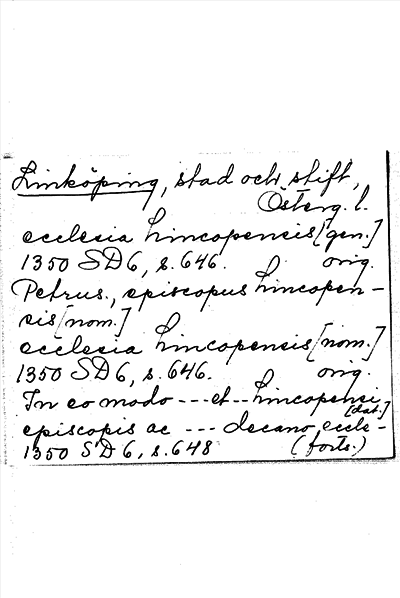 Linköping, stad och stift,
Österg. l.
ecclesia Lincopensis [gen.]
1350 SD 6, s. 646. orig.
Petrus, episcopus Lincopen-
sis [nom.]
ecclesia Lincopensis [nom.]
1350 SD 6, s. 646. orig.
In eo modo --- et -- Lincopensi
[dat.]
episcopis ac --- decano, eccle-
1350 SD 6, s. 648 (forts.)